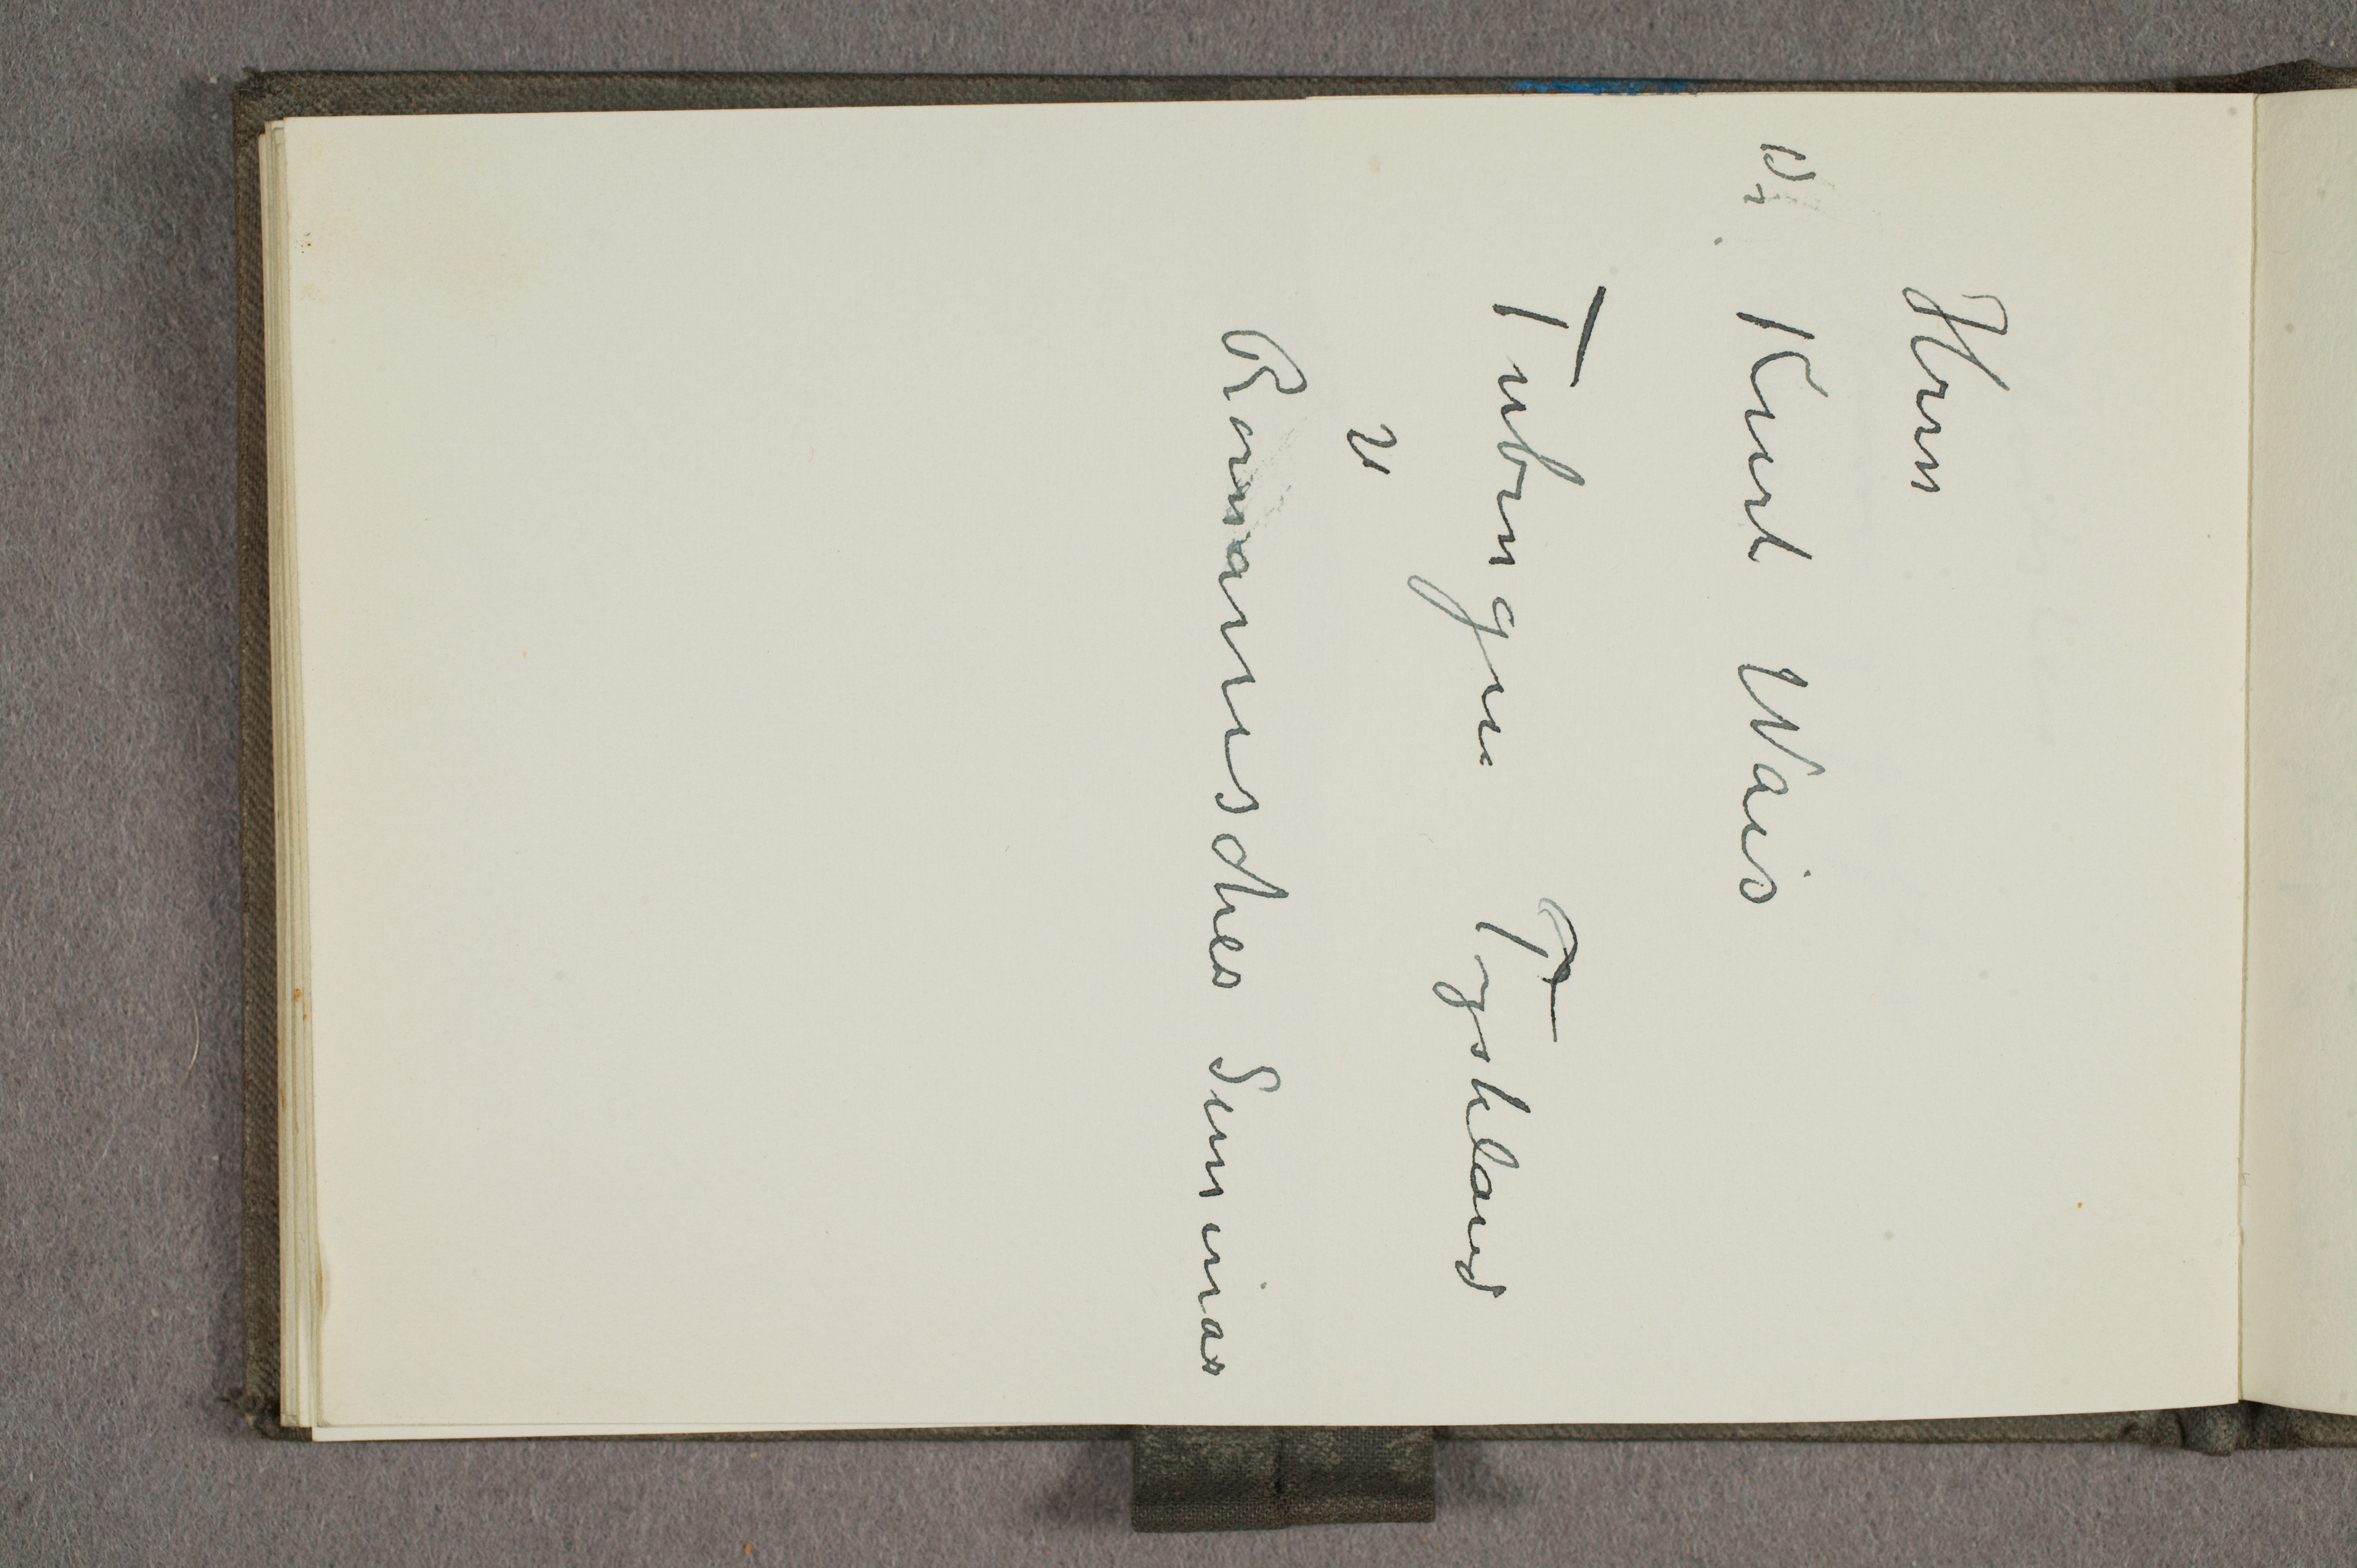 Herrn
Dr. Kurt Wais
Tubingen Tyskland
V
Romanisches Seminar